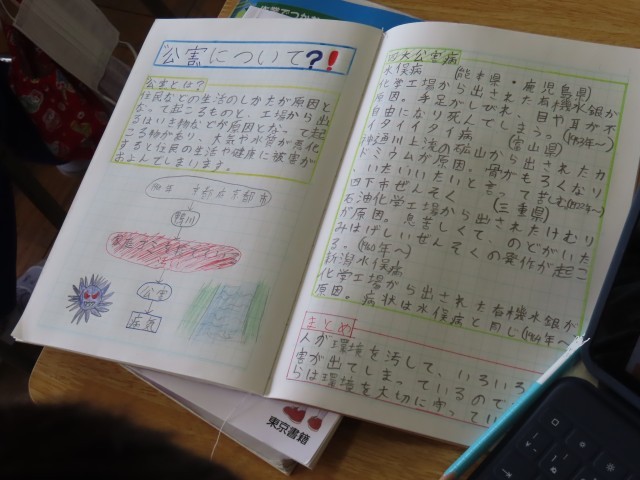 公害について?!
公害とは?
住民などの生活のしかたが原因と
なって起こるものと、工場から出
るはい土物などが原因となって起
こる物があり、大気や水質が悪化
すると住民の生活や健康に被害が
およんでしまいます。
京都府京都市
鴨川
公害
四大公害病
水俣病 (熊本県・鹿児島県)
化学工場から出された有機水銀が
原因。手足がしびれ、目や耳が不
自由になり死んでしまう。(1953年〜)
イタイイタイ病 (富山県)
神通川上流の鉱山から出されたカ
ドミウムが原因。骨がもろくなり
、いたいいたいときって苦む
四日市ぜんそく (三重県)
石油化学工場から出されたけむり
が原因。息苦しくて、のどがいた
みはげしいぜんそくの発作が起こ
る。(1960年〜)
新潟水俣病
化学工場から出された有機水銀が
原因。病状は水俣病と同じ
まとめ
人が環境を汚して、いろいろ
害が出てしまっているので
らは環境を大切に守ってい
東京書籍